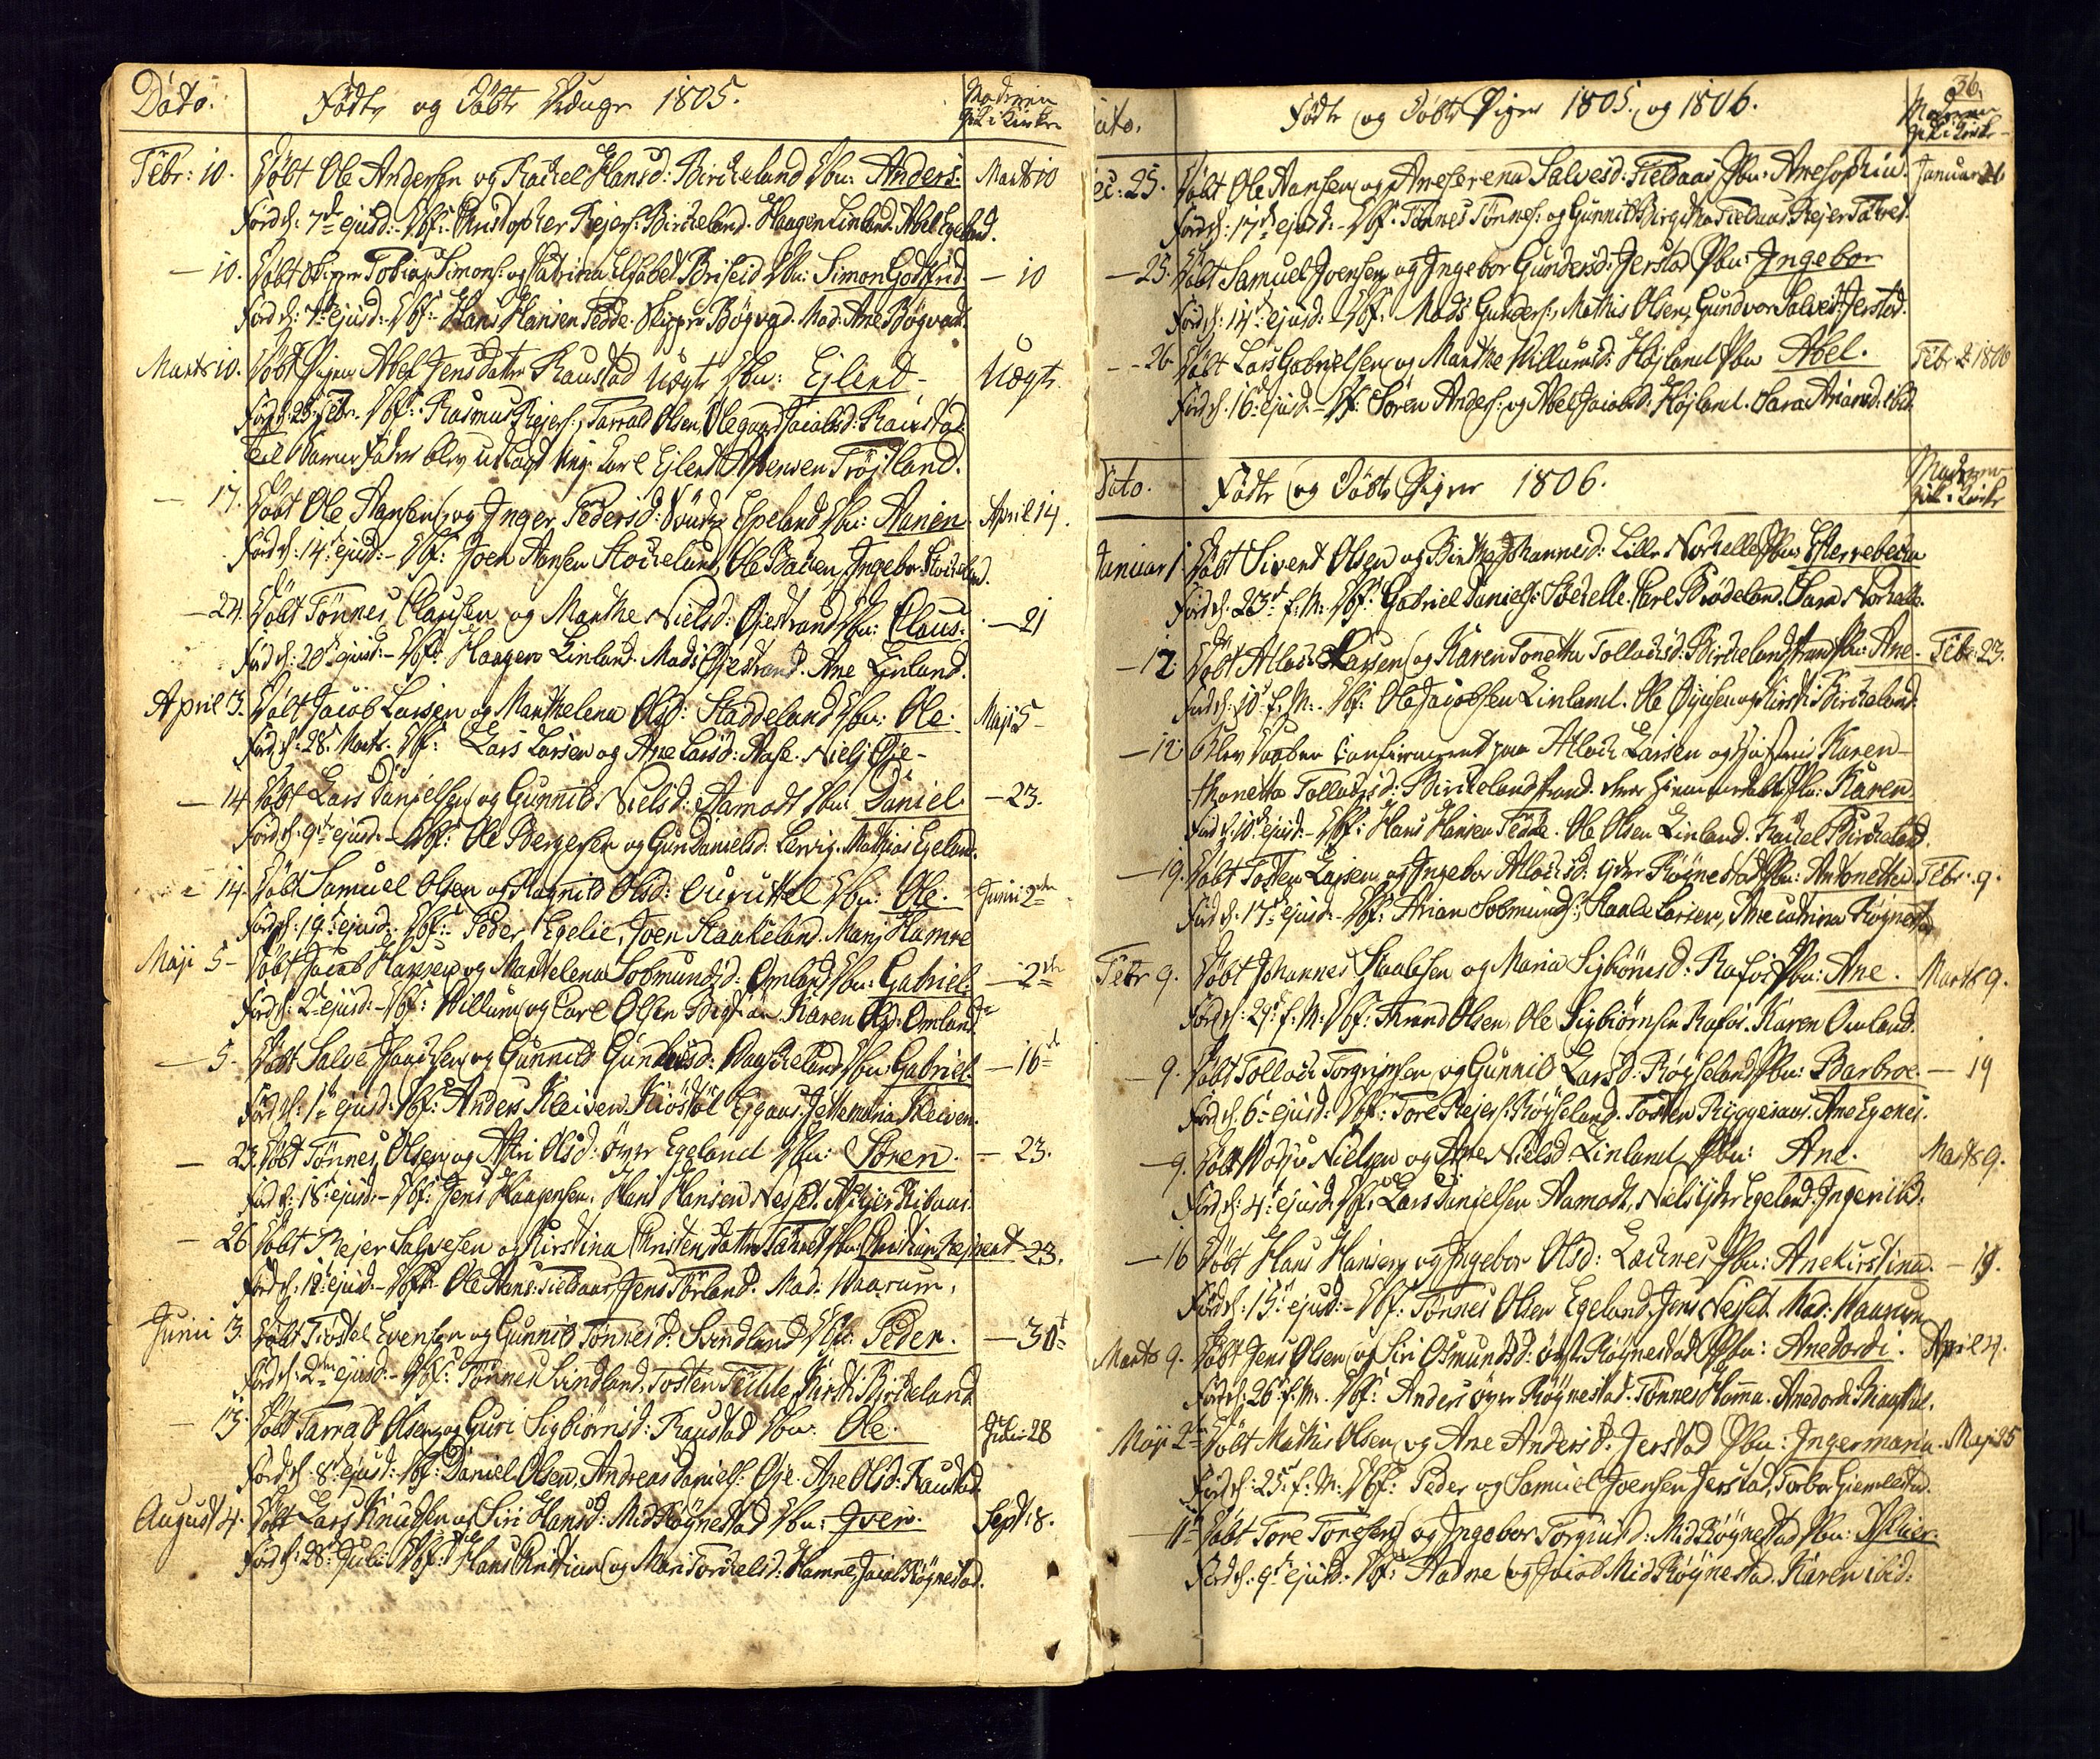 Dato. Fødte og Døbte Drenge 1805. Moderen gik i Kirke
Febr: 10. Døbt Ole Andersen og Rachel Hansd: Birckeland Dbn: Anders. Marts 10
Fød d: 7de ejusd:- Dbf: Christopher Rejers: Birckeland. Haagen Linland. Abel Egeland.
— 10. Døbt Skipper Tobias Simons: og Catrina Elsabet Briseid Dbn: Simon Godtfrid. — 10
Fød d: 7de ejusd:- Dbf: Hans Hansen Fedde. Skipper Bøgvad. Mad: Ane Bøgvad.
Marts 10. Døbt Pigen Abel Jensdatter Raustad Uægte Dbn: Ejlert - Uægte.
Fød d: 28 Febr. Dbf: Rasmus Rejers:, Tarrald Olsen, Olegand Jacobsd: Raustad.
Til Barnefader blev udlagt Ung: Karl Ejlert Trøjsland.
— 17. Døbt Ole Aansen og Inger Pedersd: Espeland Dbn: Aanen. April 14.
Fød d: 14 ejusd:- Dbf: Joen Aansen Stockeland, Ole Backen, Ingebor Stockeland.
— 24. Døbt Tønnes Clausen og Marthe Nielsd: Øjestrand Dbn: Claus. — 21
Fød d: 20 ejusd:- Dbf: Haagen Linland. Mads Øjestrand. Ane Linland.
April 3. Døbt Jacob Larsen og Marthelena Olsd: Staddeland Dbn: Ole. Maji 5-
Fød d: 28 Marts. Dbf: Lars Larsen og Ane Larsd: Aase. Niels Øje-
— 14 Døbt Lars Danielsen og Gunnild Nielsd: Aamodt Dbn: Daniel - 23.
Fød d: 9de ejusd:- Dbf: Ole Bergesen og Guri Danielsd: Lervig. Mathias Egeland.
— 14. Døbt Samuel Olsen og Ragnild Olsd: Dbn: Ole. Junii 2den
Fød d: 19 ejusd: Dbf: Peder Egelie, Joen Staakeland. Mari Hamre
Maji 5- Døbt Jacob Hansen og Marthelena Sobmundsd: Omland Dbn: Gabriel. — 2den
Fød d: 2 ejusd:- Dbf: Willum og Carl Olsen Karen Olsd: Omland
— 5- Døbt Salve og Gunnild Gundersd: Dbn: Gabriel. — 16de
Fød d: 1ste ejusd: Dbf: Anders Kleiven. Kiøstøl Ejgaas. Jettemaria Kleiven.
— 23. Døbt Tønnes Olsen og Astri Olsd: øvre Egeland Dbn: Søren. — 23.
Fød d: 18 ejusd:- Dbf: Jens Haagensen. Hans Hansen Nesset. Ribaas.
— 26 Døbt Rejer Salvesen og Kirstina Christensdatter Dbn: Christian Rejnert - 23.
Fød d: 12 ejusd:- Dbf: Ole Aans: Fieldaas, Jens Tørland. Mad: Waarum.
Junii 3. Døbt Kiøstel Evensen og Gunnild Tønnesd: Svindland Dbn: Peder. — 30t
Fød d: 2den ejusd:- Dbf: Tønnes Svindland, Tosten Kirsti Birckeland
— 13. Døbt Tarrald Olsen og Guri Sigbiørnsd: Raustad Dbn: Ole. Julii 28
Fød d: 8 ejusd: Dbf: Daniel Olsen, Andreas Daniels: Øje. Ane Olsd: Raustad.
August 4. Døbt Lars Knudsen og Siri Hansd: Mid Røgnestad Dbn: Iver. Sept: 8.
Fød d: 28 Julii Dbf: Hans Christian og Mari Torckelsd: Hamre, Jacob Røgnestad.
36.
Dato. Fødte og Døbte Piger 1805. og 1806. Moderen gik i Kirke
Dec: 25. Døbt Ole Aansen og Aneserena Salvesd: Fieldaas Pbn: Anesophia. Januar
Fød d: 17de ejusd:- Dbf: Tønnes Tønnes: og Gunnild Birgitha Fieldaas. Rejer
— 25 Døbt Samuel Joensen og Ingebor Gundersd: Jerstad Pbn: Ingebor
Fød d: 14 ejusd:- Dbf: Mads Gunders:, Mathis Olsen, Gundvor Salvesd: Jerstad.
— 26 Døbt Lars Gabrielsen og Marthe Willumsd: Højland Pbn Abel. Febr 2 1806
Fød d: 16 ejusd:- Dbf: Søren Anders: og Abel Jacobsd: Højland. Sara Ariansd: ibid.
Dato. Fødte og Døbte Piger 1806. Moderen gik i Kirke
Januar 1 Døbt Sivert Olsen og Birthe Johannesd: Lille Nockelle Pbn: Esterrebecca
Fød d: 23 f. M: Dbf: Gabriel Daniels: Carl Brødeland. Sara
— 12 Døbt Atlack Larsen og Karen Tonetta Tollacksd: Birckelandstrand Pbn: Ane. Febr: 23.
Fød d: 10 f. M:- Dbf: Ole Jacobsen Linland. Ole og Kirsti Birckeland.
— 12 Blev Daaben Confirmeret paa Atlack Larsen og Hustrues Karen-
thonetta Tollacksd: Birckelandstrand deres hiemmedøbte Pbn: Karen
Fød d: 10 ejusd:- Dbf: Hans Hansen Fedde. Ole Olsen Linland. Rachel Birckeland.
— 19. Døbt Tosten Larsen og Ingebor Atlacksd: yder Røgnestad Pbn: Antonetta. Febr: 9.
Fød d: 17 ejusd:- Dbf: Arian Sobmunds:, Staale Larsen, Anecatrina Røgnestad
Febr 9. Døbt Johannes Staalesen og Maria Sigbiørnsd: Rafos Pbn: Ane. Marts 9.
Fød d: 29 f. M: Dbf: Trond Olsen, Ole Sigbiørnsen Rafos. Karen Omland.
— 9. Døbt Tollack Torgrimsen og Gunnild Larsd: Røysland Pbn: Barbroe. — 19
Fød d: 6 ejusd: Dbf: Tore Rejers: Røyseland. Tosten Ane Egenes.
— 9. Døbt Nielsen og Ane Nielsd Linland, Pbn: Ane. Marts 9.
Fød d: 4 ejusd: Dbf: Lars Danielsen Aamodt, Niels yder Egeland. Ingerild.
— 16 Døbt Hans Hansen og Ingebor Olsd: Lacknes Pbn: Anekirstina. — 19.
Fød d: 13 ejusd:- Dbf: Tønnes Olsen Egeland, Jens Nesset. Mad: Waarum
Marts 9. Døbt Jens Olsen og Siri Osmundsd: øvre Røgnestad Pbn: Anedordi. April 4.
Fød d: 26 f. M:- Dbf: Anders øvre Røgnestad. Tønnes Homma. Anedordi
Maji 2den Døbt Mathis Olsen og Ane Andersd: Jerstad Pbn: Ingermaria. Maji 25
Fød d: 25 f. M: Dbf: Peder og Samuel Joensen Jerstad, Torbor Giemlestad.
— 11 Døbt Tore Toresen og Ingebor Torgiusd: Mid Røgnestad Pbn:
Fød d: 9 ejusd: Dbf: Aadne og Jacob Mid Røgnestad. Karen ibid: